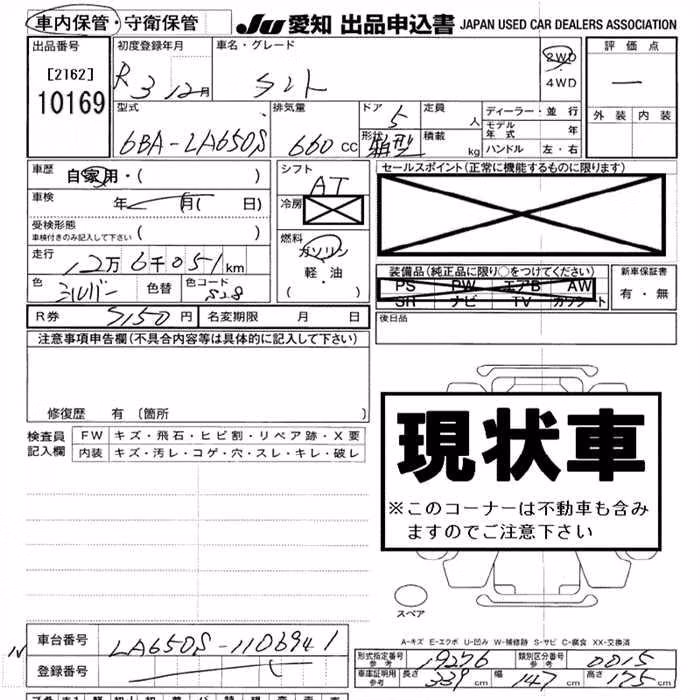 車内保管・守衛保管 JU 愛知 出品申込書 JAPAN USED CAR DEALERS ASSOCIATION
出品番号 初度登録年月 車名・グレード 2WD 評価点
[2162] R3 12月 タント 4WD ー
10169 型式 排気量 ドア 5 定員 人 ディーラー・並行 外装 内装
モデル年式 年
6BA-LA650S 660cc 形状 箱型 積載 kg ハンドル 左・右
車歴 自家用・( ) シフト AT セールスポイント(正常に機能するものに限ります)
車検 年 月( 日) 冷房
受検形態 ( )
車検付きのみ記入して下さい
燃料 ガソリン
走行 12万6千051km 軽・油 装備品(純正品に限り○をつけてください) 新車保証書
色 シルバー 色替 色コード S28 ( ・ ) PS PW エアB AW 有・無
SR ナビ TV カワシート
R券 5150円 名変期限 月 日 後日品
注意事項申告欄(不具合内容等は具体的に記入して下さい)
修復歴 有 〔箇所 〕
検査員 FW キズ・飛石・ヒビ割・リペア跡・X要
記入欄 内装 キズ・汚レ・コゲ・穴・スレ・キレ・破レ
現状車
※このコーナーは不動車も含み
ますのでご注意下さい
スペア
A-キズ E-エクボ U-凹み W-補修跡 S-サビ C-腐食 XX-交換済
車台番号 LA650S-1106941
形式指定番号 参考 19276 類別区分番号 参考 0015
登録番号
車庫証明用 参考 長さ 339cm 幅 147cm 高さ 175cm